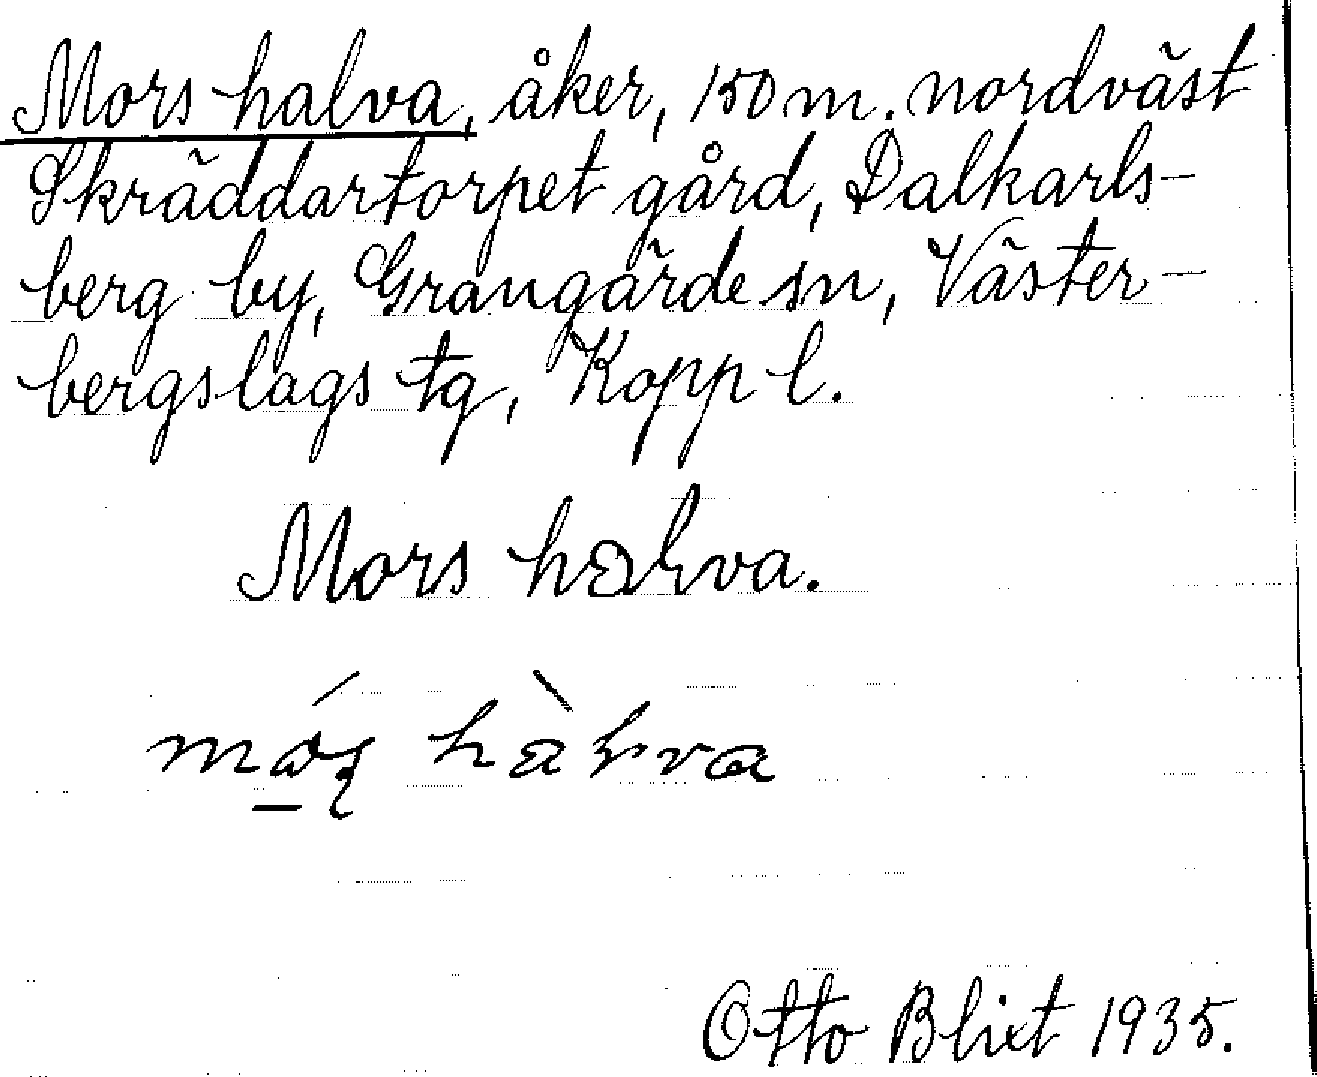 Mors halva, åker, 150 m. nordväst
Skräddartorpet gård, Dalkarls-
berg by, Grangärde sn, Väster-
bergslags tg, Kopp l.
Mors halva.
Otto Blixt 1935.